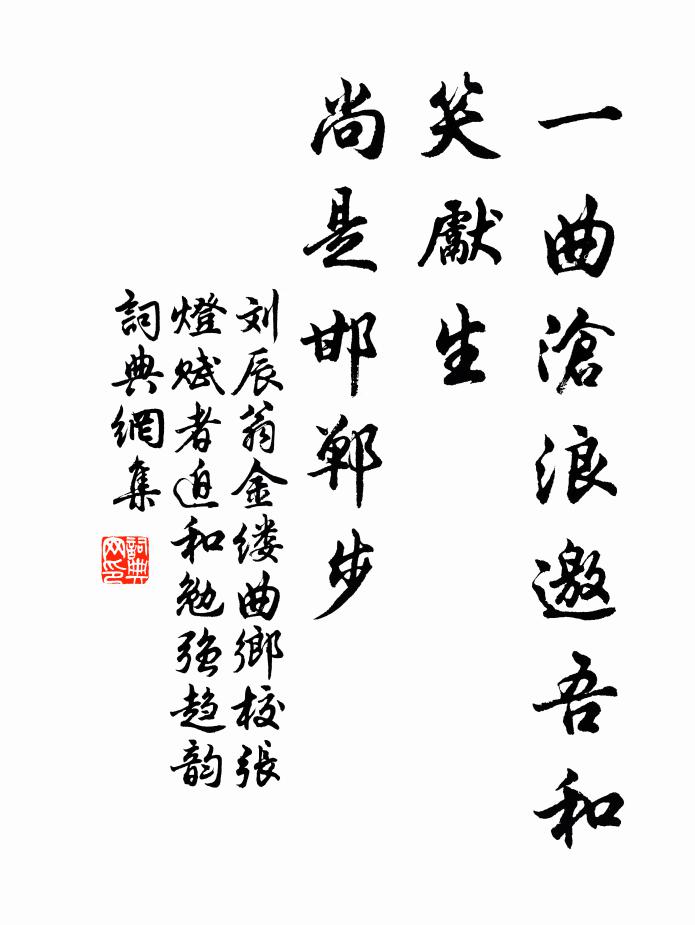 一曲滄浪邀吾和
笑獻生
尚是邯鄲步
刘辰翁金缕曲鄉校張
燈赋者迫和勉强趋韵
詞典網集
詞典網印